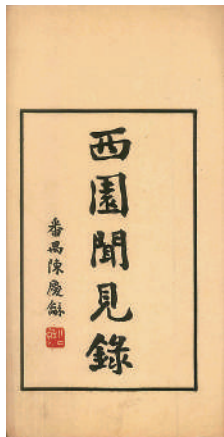 西園聞見錄
番禺陳慶龢